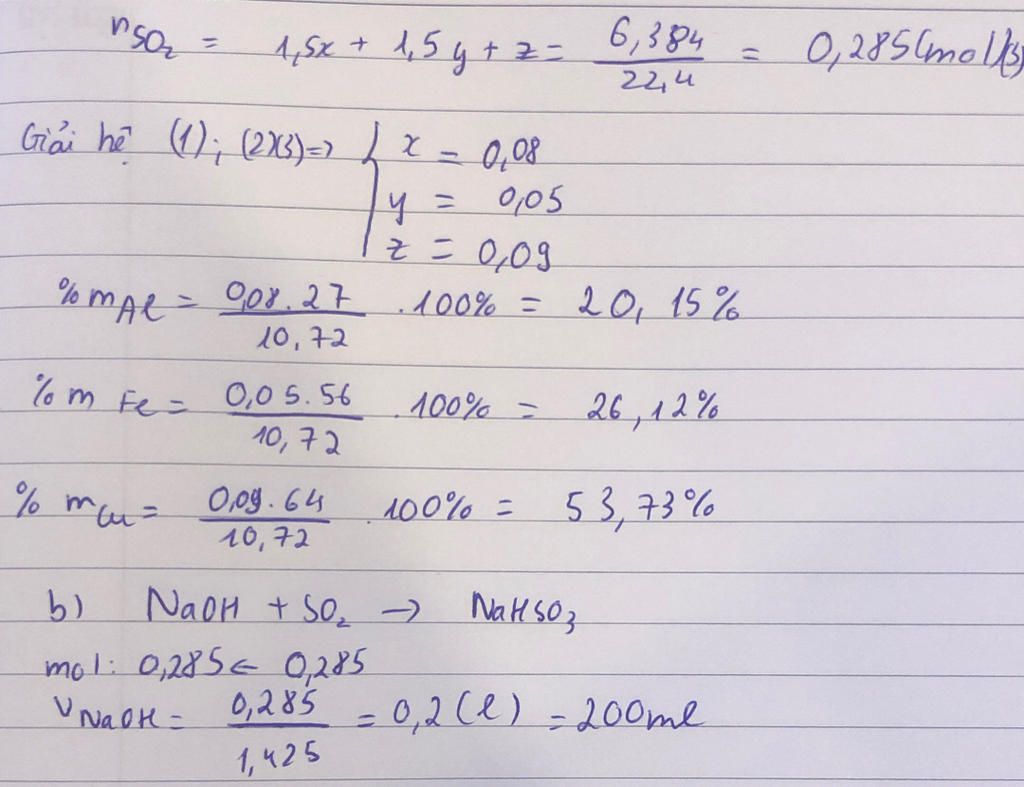 nSO₂ = 1,5x + 1,5y + z = 6,384/22,4 = 0,285(mol)(3)
Giải hệ (1); (2)(3) => { x = 0,08
y = 0,05
z = 0,09
%mAl = 0,08.27/10,72 .100% = 20,15%
%m Fe = 0,05.56/10,72 .100% = 26,12%
% mCu = 0,09.64/10,72 .100% = 53,73%
b) NaOH + SO₂ → NaHSO₃
mol: 0,285 ← 0,285
VNaOH = 0,285/1,425 = 0,2(l) = 200ml